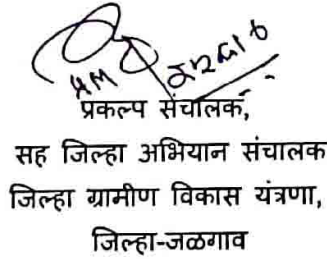 प्रकल्प संचालक,
सह जिल्हा अभियान संचालक
जिल्हा ग्रामीण विकास यंत्रणा,
जिल्हा-जळगाव